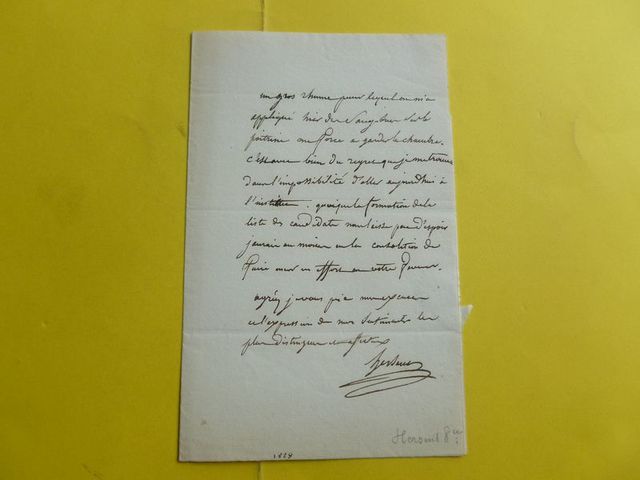 un gros rhume pour lequel on m'a
appliqué hier des Sangsues sur la
poitrine me force a garder la chambre.
c'est avec bien du regret que je me trouve
dans l'impossibilité d'aller aujourdhui à
l'institut. quoique la formation de la
liste des candidats ne laisse pas d'espoir
j'aurais au moins eu la consolation de
faire encor un effort en votre faveur.
agréez je vous prie mes excuses
et l'expression de mes Sentimens les
plus distingués
hersent
Hersent